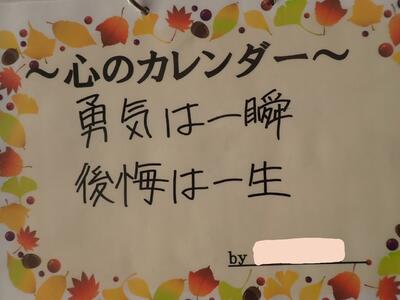 ～心のカレンダー～
勇気は一瞬
後悔は一生
by